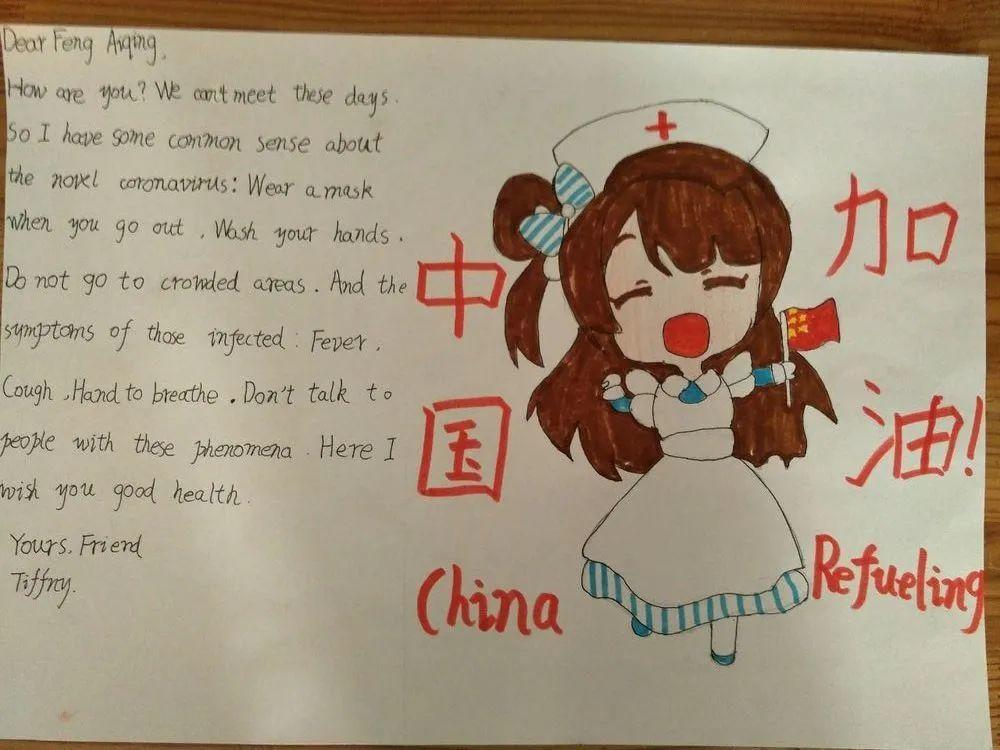 Dear Feng Aiqing,
How are you? We can't meet these days.
So I have some common sense about
the novel coronavirus: Wear a mask
when you go out , Wash your hands .
Do not go to crowded areas . And the
symptoms of those infected : Fever ,
Cough , Hand to breathe . Don't talk to
people with these phenomena . Here I
wish you good health .
Yours, Friend
Tiffny.
中国
China
加油!
Refueling